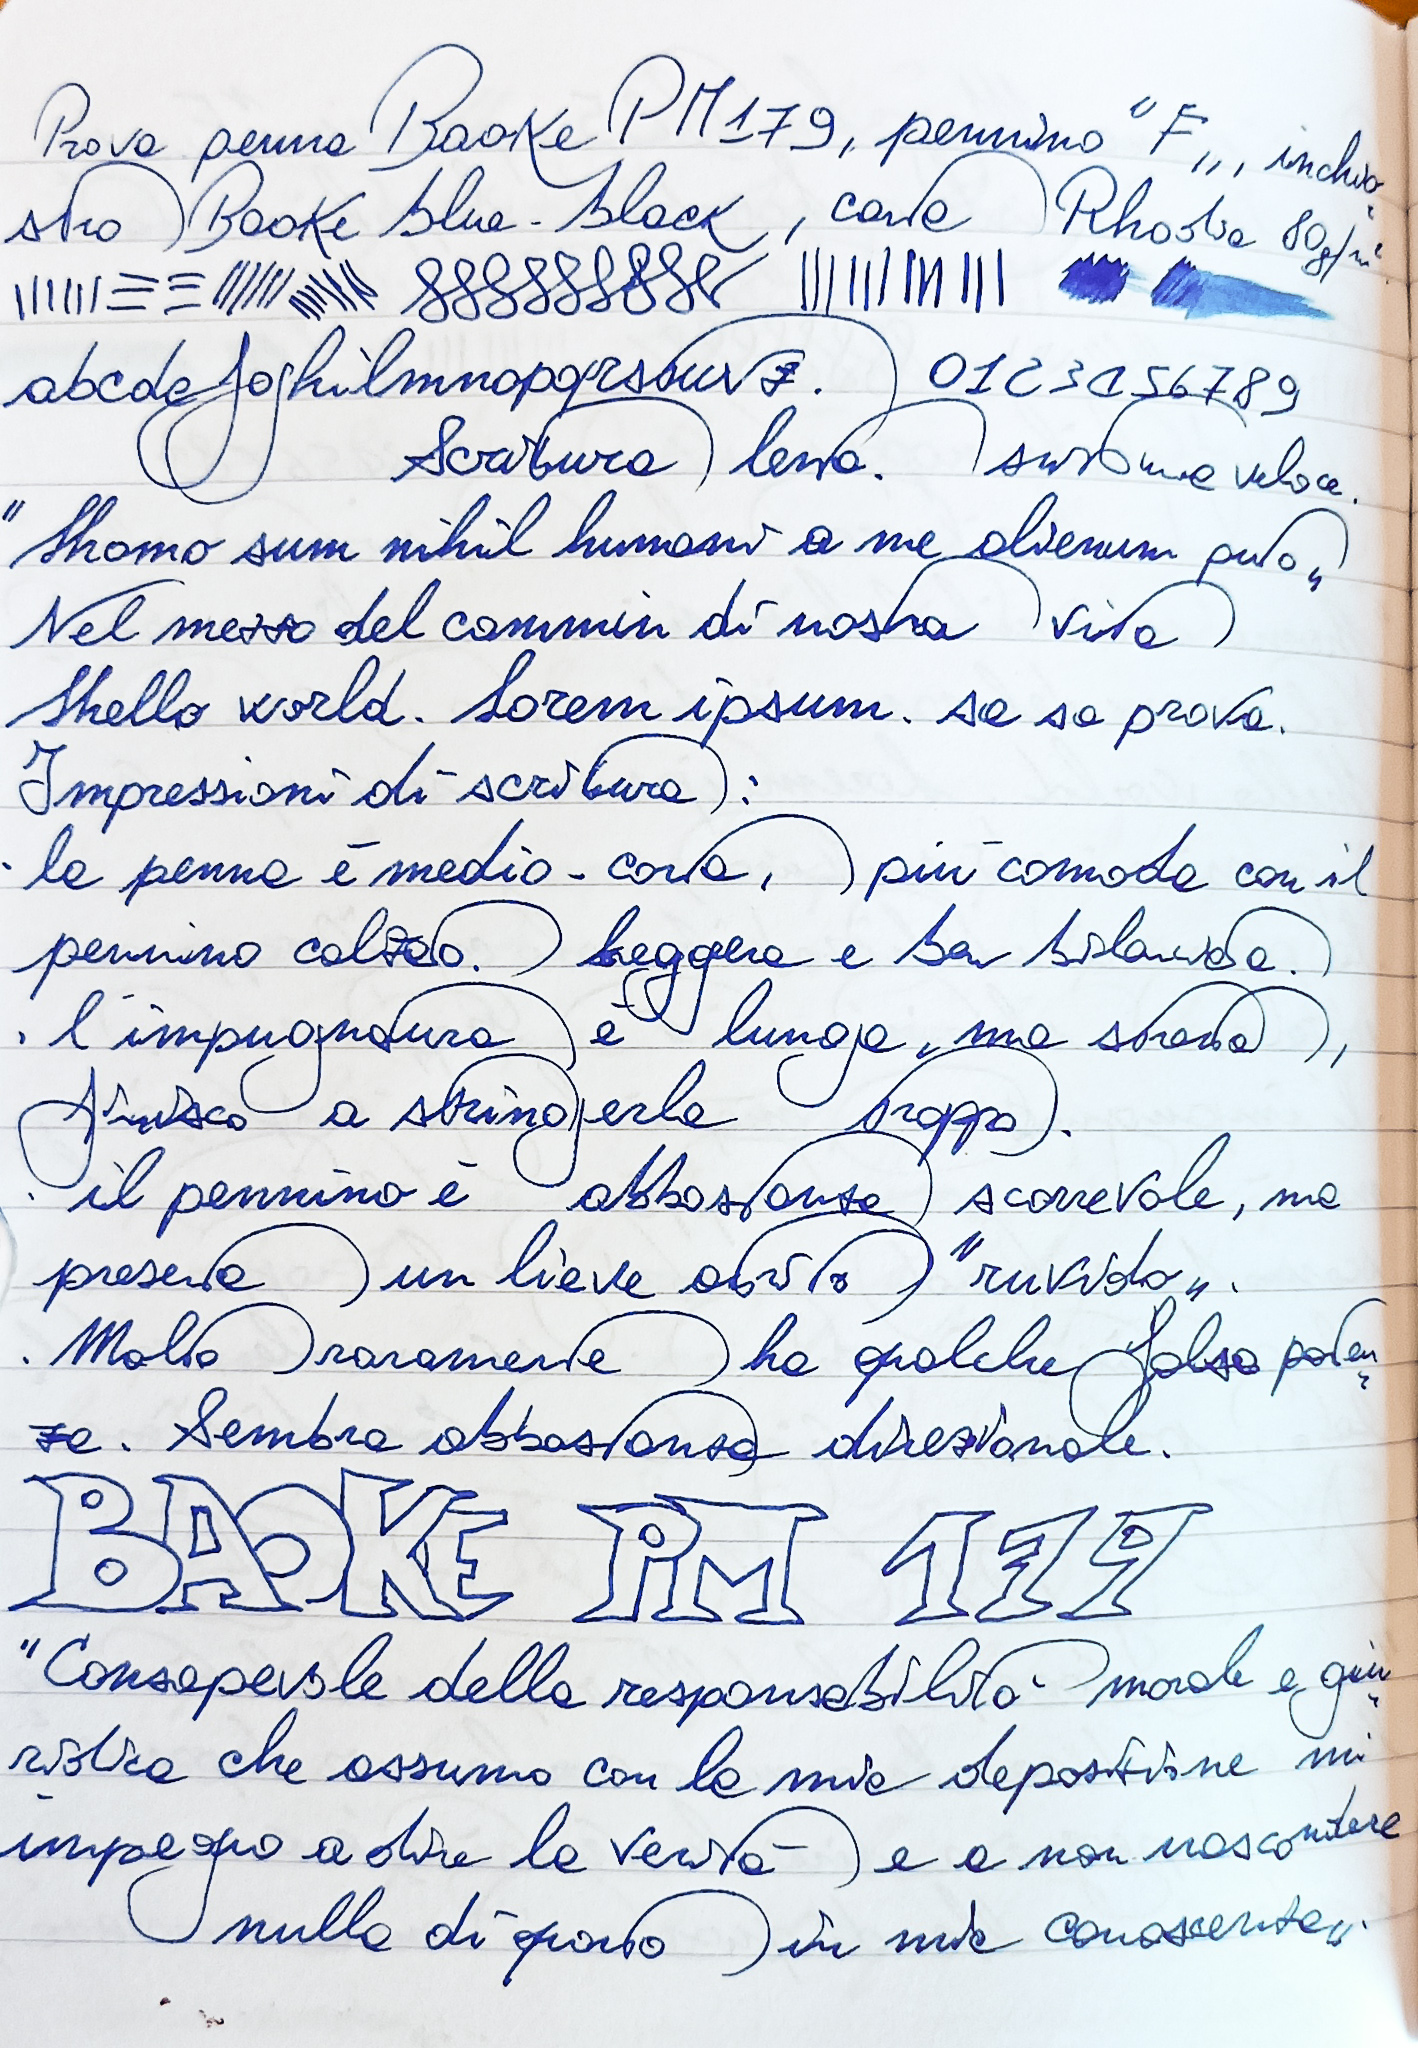 Prova penna Baoke PM179, pennino "F", inchio-
stro Baoke blue-black, carta Rhodia 80g/m²
abcdefghilmnopqrstuvz. 0123456789
Scrittura lenta. scrittura veloce.
"Homo sum nihil humani a me alienum puto"
Nel mezzo del cammin di nostra vita
Hello world. Lorem ipsum. sa sa prova.
Impressioni di scrittura:
· la penna è medio-corta, più comoda con il
pennino calzato. Leggera e ben bilanciata.
· l'impugnatura è lunga, ma stretta,
finisco a stringerla troppo.
· il pennino è abbastanza scorrevole, ma
presenta un lieve attrito "ruvido".
· Molto raramente ha qualche falsa parten-
za. Sembra abbastanza direzionale.
BAOKE PM 179
"Consapevole della responsabilità morale e giu-
ridica che assumo con la mia deposizione mi
impegno a dire la verità e a non nascondere
nulla di quanto in mia conoscenza".